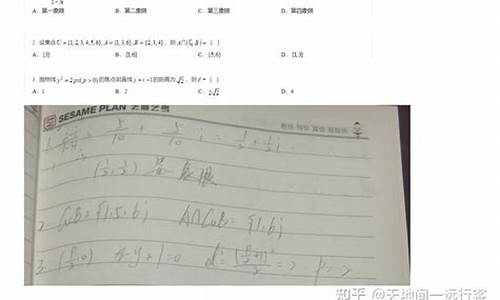 1-3i
A. 第一象限 B. 第二象限 C. 第三象限 D. 第四象限
2. 设集合U={1,2,3,4,5,6}, A={1,3,6}, B={2,3,4}, 则A∩(∁UB)=( )
A. {3} B. {1,6} C. {5,6} D. {1,3}
3. 抛物线y²=2px(p>0)的焦点到直线y=x+1的距离为√2, 则p=( )
A. 1 B. 2 C. 2√2 D. 4
SESAME PLAN 芝麻之客
1. 5/10 + 5/10 i = 1/2 + 1/2 i
(1/2, 1/2) 第一象限
2. CuB={1,5,6} A∩CuB={1,6}
3. (p/2, 0) x-y+1=0 p=2
知乎 @天地间一远行客